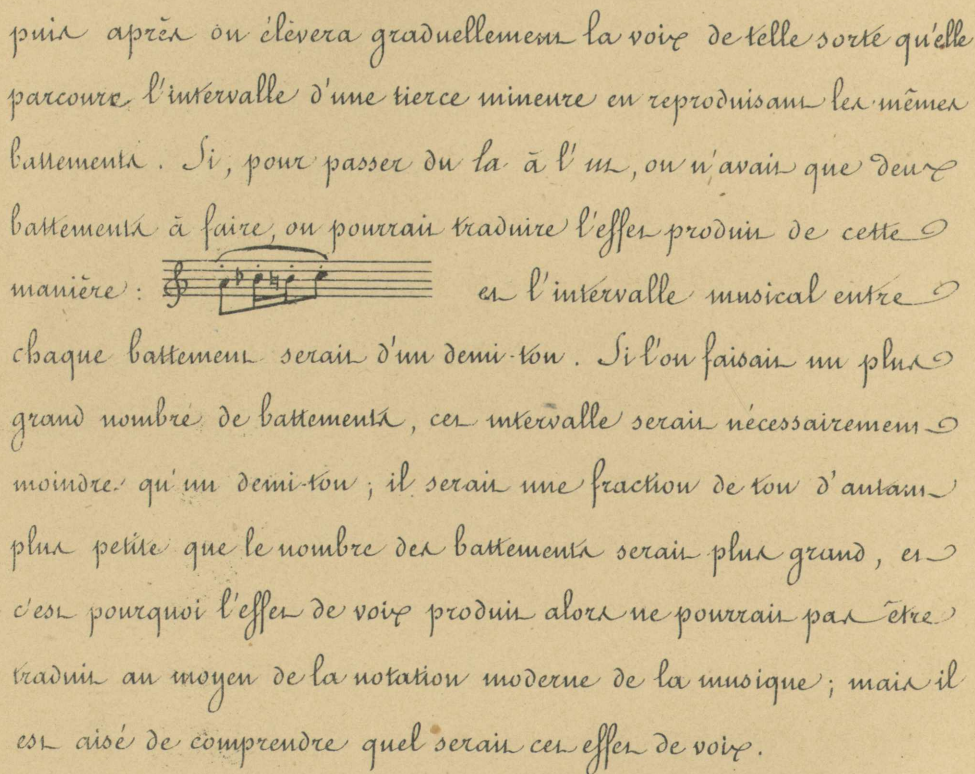 puis après on élèvera graduellement la voix de telle sorte qu'elle
parcoure l'intervalle d'une tierce mineure en reproduisant les mêmes
battements. Si, pour passer du la à l'ut, on n'avait que deux
battements à faire, on pourrait traduire l'effet produit de cette
manière: et l'intervalle musical entre
chaque battement serait d'un demi-ton. Si l'on faisait un plus
grand nombre de battements, cet intervalle serait nécessairement
moindre qu'un demi-ton; il serait une fraction de ton d'autant
plus petite que le nombre des battements serait plus grand, et
c'est pourquoi l'effet de voix produit alors ne pourrait pas être
traduit au moyen de la notation moderne de la musique; mais il
est aisé de comprendre quel serait cet effet de voix.